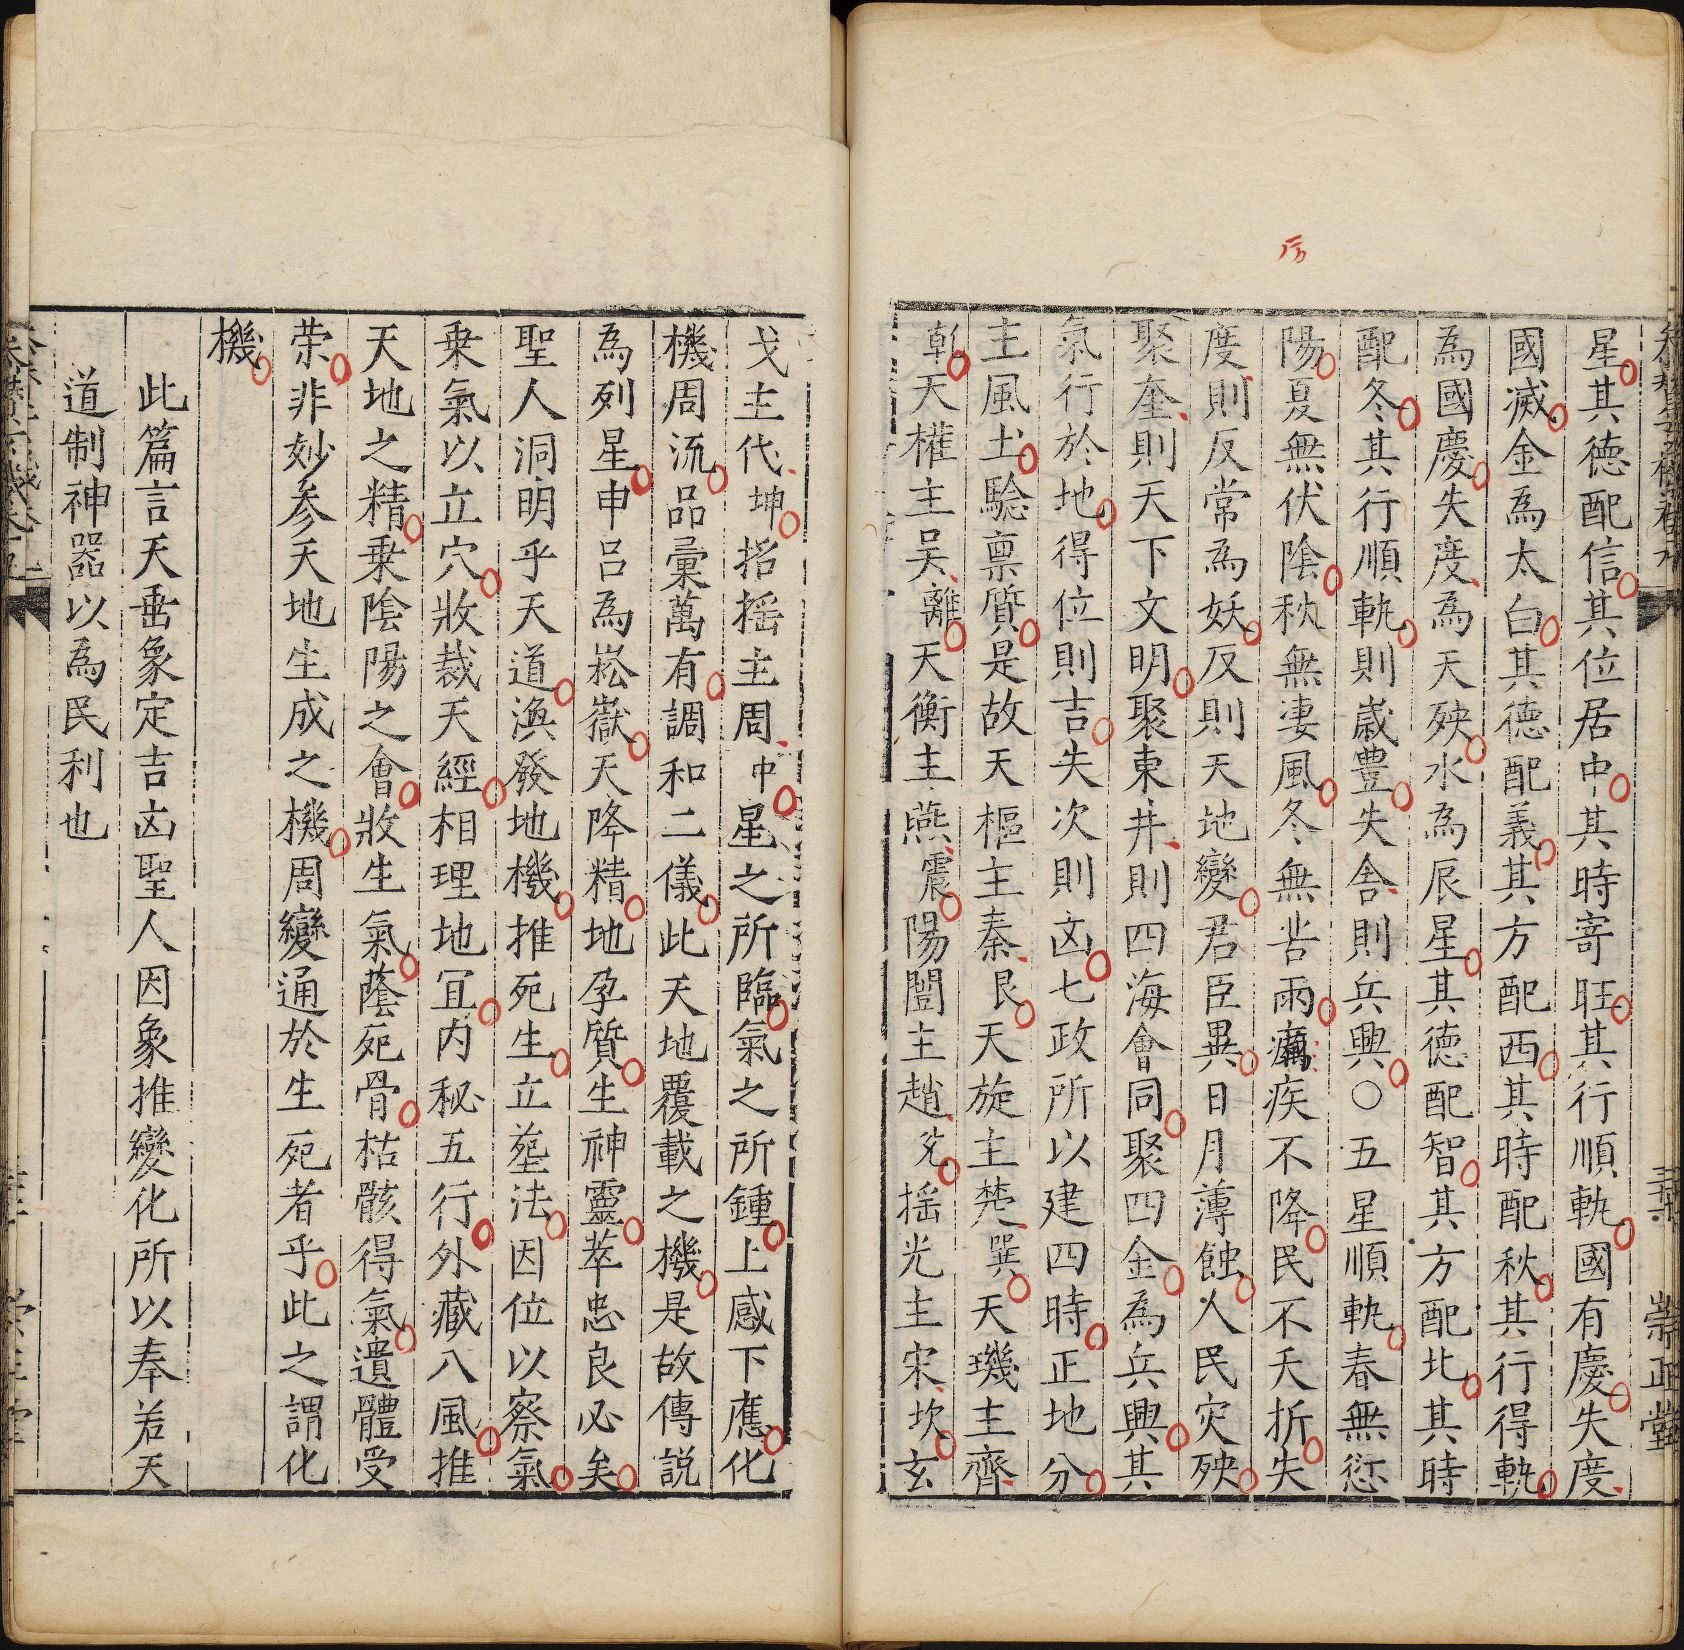 星其德配信其位居中其時寄旺其行順軌國有慶失度
國滅金為太白其德配義其方配西其時配秋其行得軌
為國慶失度為天殃水為辰星其德配智其方配北其時
配冬其行順軌則歲豊失舎則兵興○五星順軌春無愆
陽夏無伏陰秋無凄風冬無苦雨癘疾不降民不夭折失
度則反常為妖反則天地變君臣異日月薄蝕人民灾殃
聚奎則天下文明聚東井則四海會同聚四金為兵興其
氣行於地得位則吉失次則凶七政所以建四時正地分
主風土驗禀質是故天樞主秦艮天旋主楚巽天璣主齊
乾天權主吴離天衡主燕震陽闓主趙兌搖光主宋坎玄
戈主代坤招搖主周中星之所臨氣之所鍾上感下應化
機周流品彙萬有調和二儀此天地覆載之機是故傳説
為列星申吕為崧嶽天降精地孕質生神靈萃忠良必矣
聖人洞明乎天道渙發地機推死生立塟法因位以察氣
乗氣以立穴收裁天經相理地宜内秘五行外藏八風推
天地之精乗陰陽之會收生氣蔭死骨枯骸得氣遺體受
荣非妙参天地生成之機周變通於生死者乎此之謂化
機
此篇言天垂象定吉凶聖人因象推變化所以奉若天
道制神器以為民利也
崇正堂